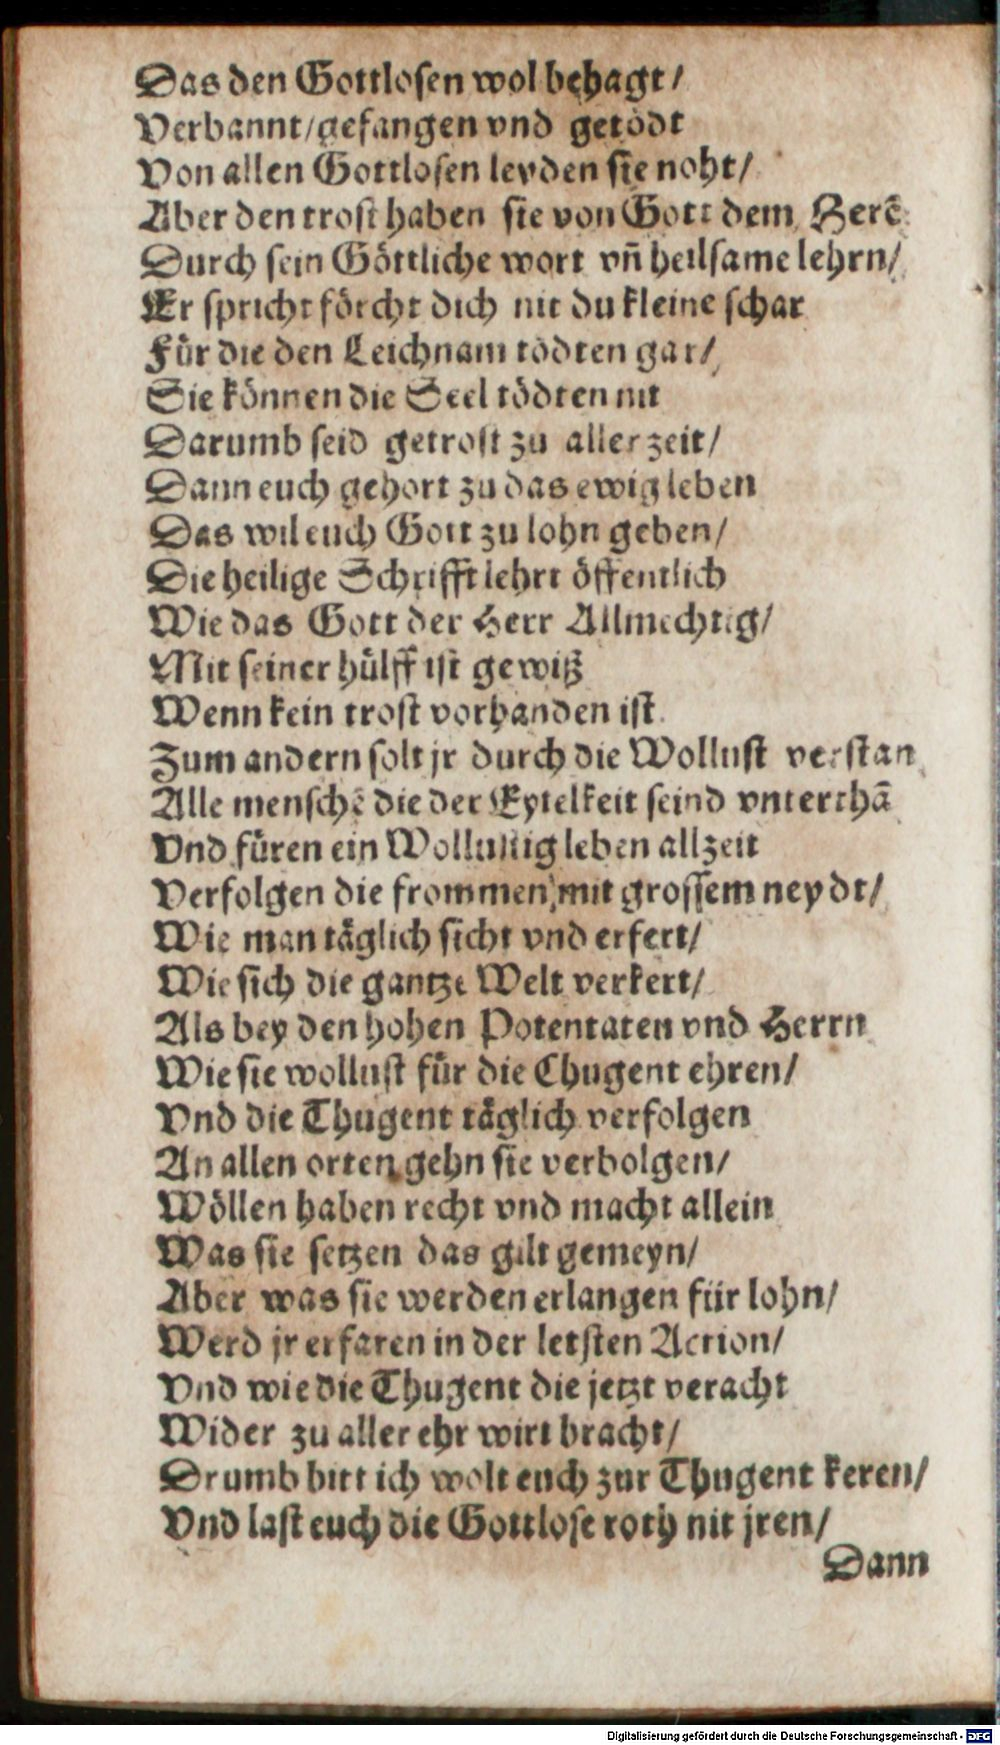 Das den Gottlosen wol behagt/
Verbannt/gefangen vnd getödt
Von allen Gottlosen leyden sie noht/
Aber den trost haben sie von Gott dem Herẽ
Durch sein Göttliche wort vñ heilsame lehrn/
Er spricht förcht dich nit du kleine schar
Für die den Leichnam tödten gar/
Sie können die Seel tödten nit
Darumb seid getrost zu aller zeit/
Dann euch gehort zu das ewig leben
Das wil euch Gott zu lohn geben/
Die heilige Schrifft lehrt öffentlich
Wie das Gott der Herr Allmechtig/
Mit seiner hülff ist gewiß
Wenn kein trost vorhanden ist.
Zum andern solt jr durch die Wollust verstan
Alle menschẽ die der Eytelkeit seind vnterthã
Vnd füren ein Wollustig leben allzeit
Verfolgen die frommen mit grossem neydt/
Wie man täglich sicht vnd erfert/
Wie sich die gantze Welt verkert/
Als bey den hohen Potentaten vnd Herrn
Wie sie wollust für die Thugent ehren/
Vnd die Thugent täglich verfolgen
An allen orten gehn sie verbolgen/
Wöllen haben recht vnd macht allein
Was sie setzen das gilt gemeyn/
Aber was sie werden erlangen für lohn/
Werd jr erfaren in der letsten Action/
Vnd wie die Thugent die jetzt veracht
Wider zu aller ehr wirt bracht/
Drumb bitt ich wolt euch zur Thugent keren/
Vnd last euch die Gottlose roth nit jren/
Dann
Digitalisierung gefördert durch die Deutsche Forschungsgemeinschaft - DFG